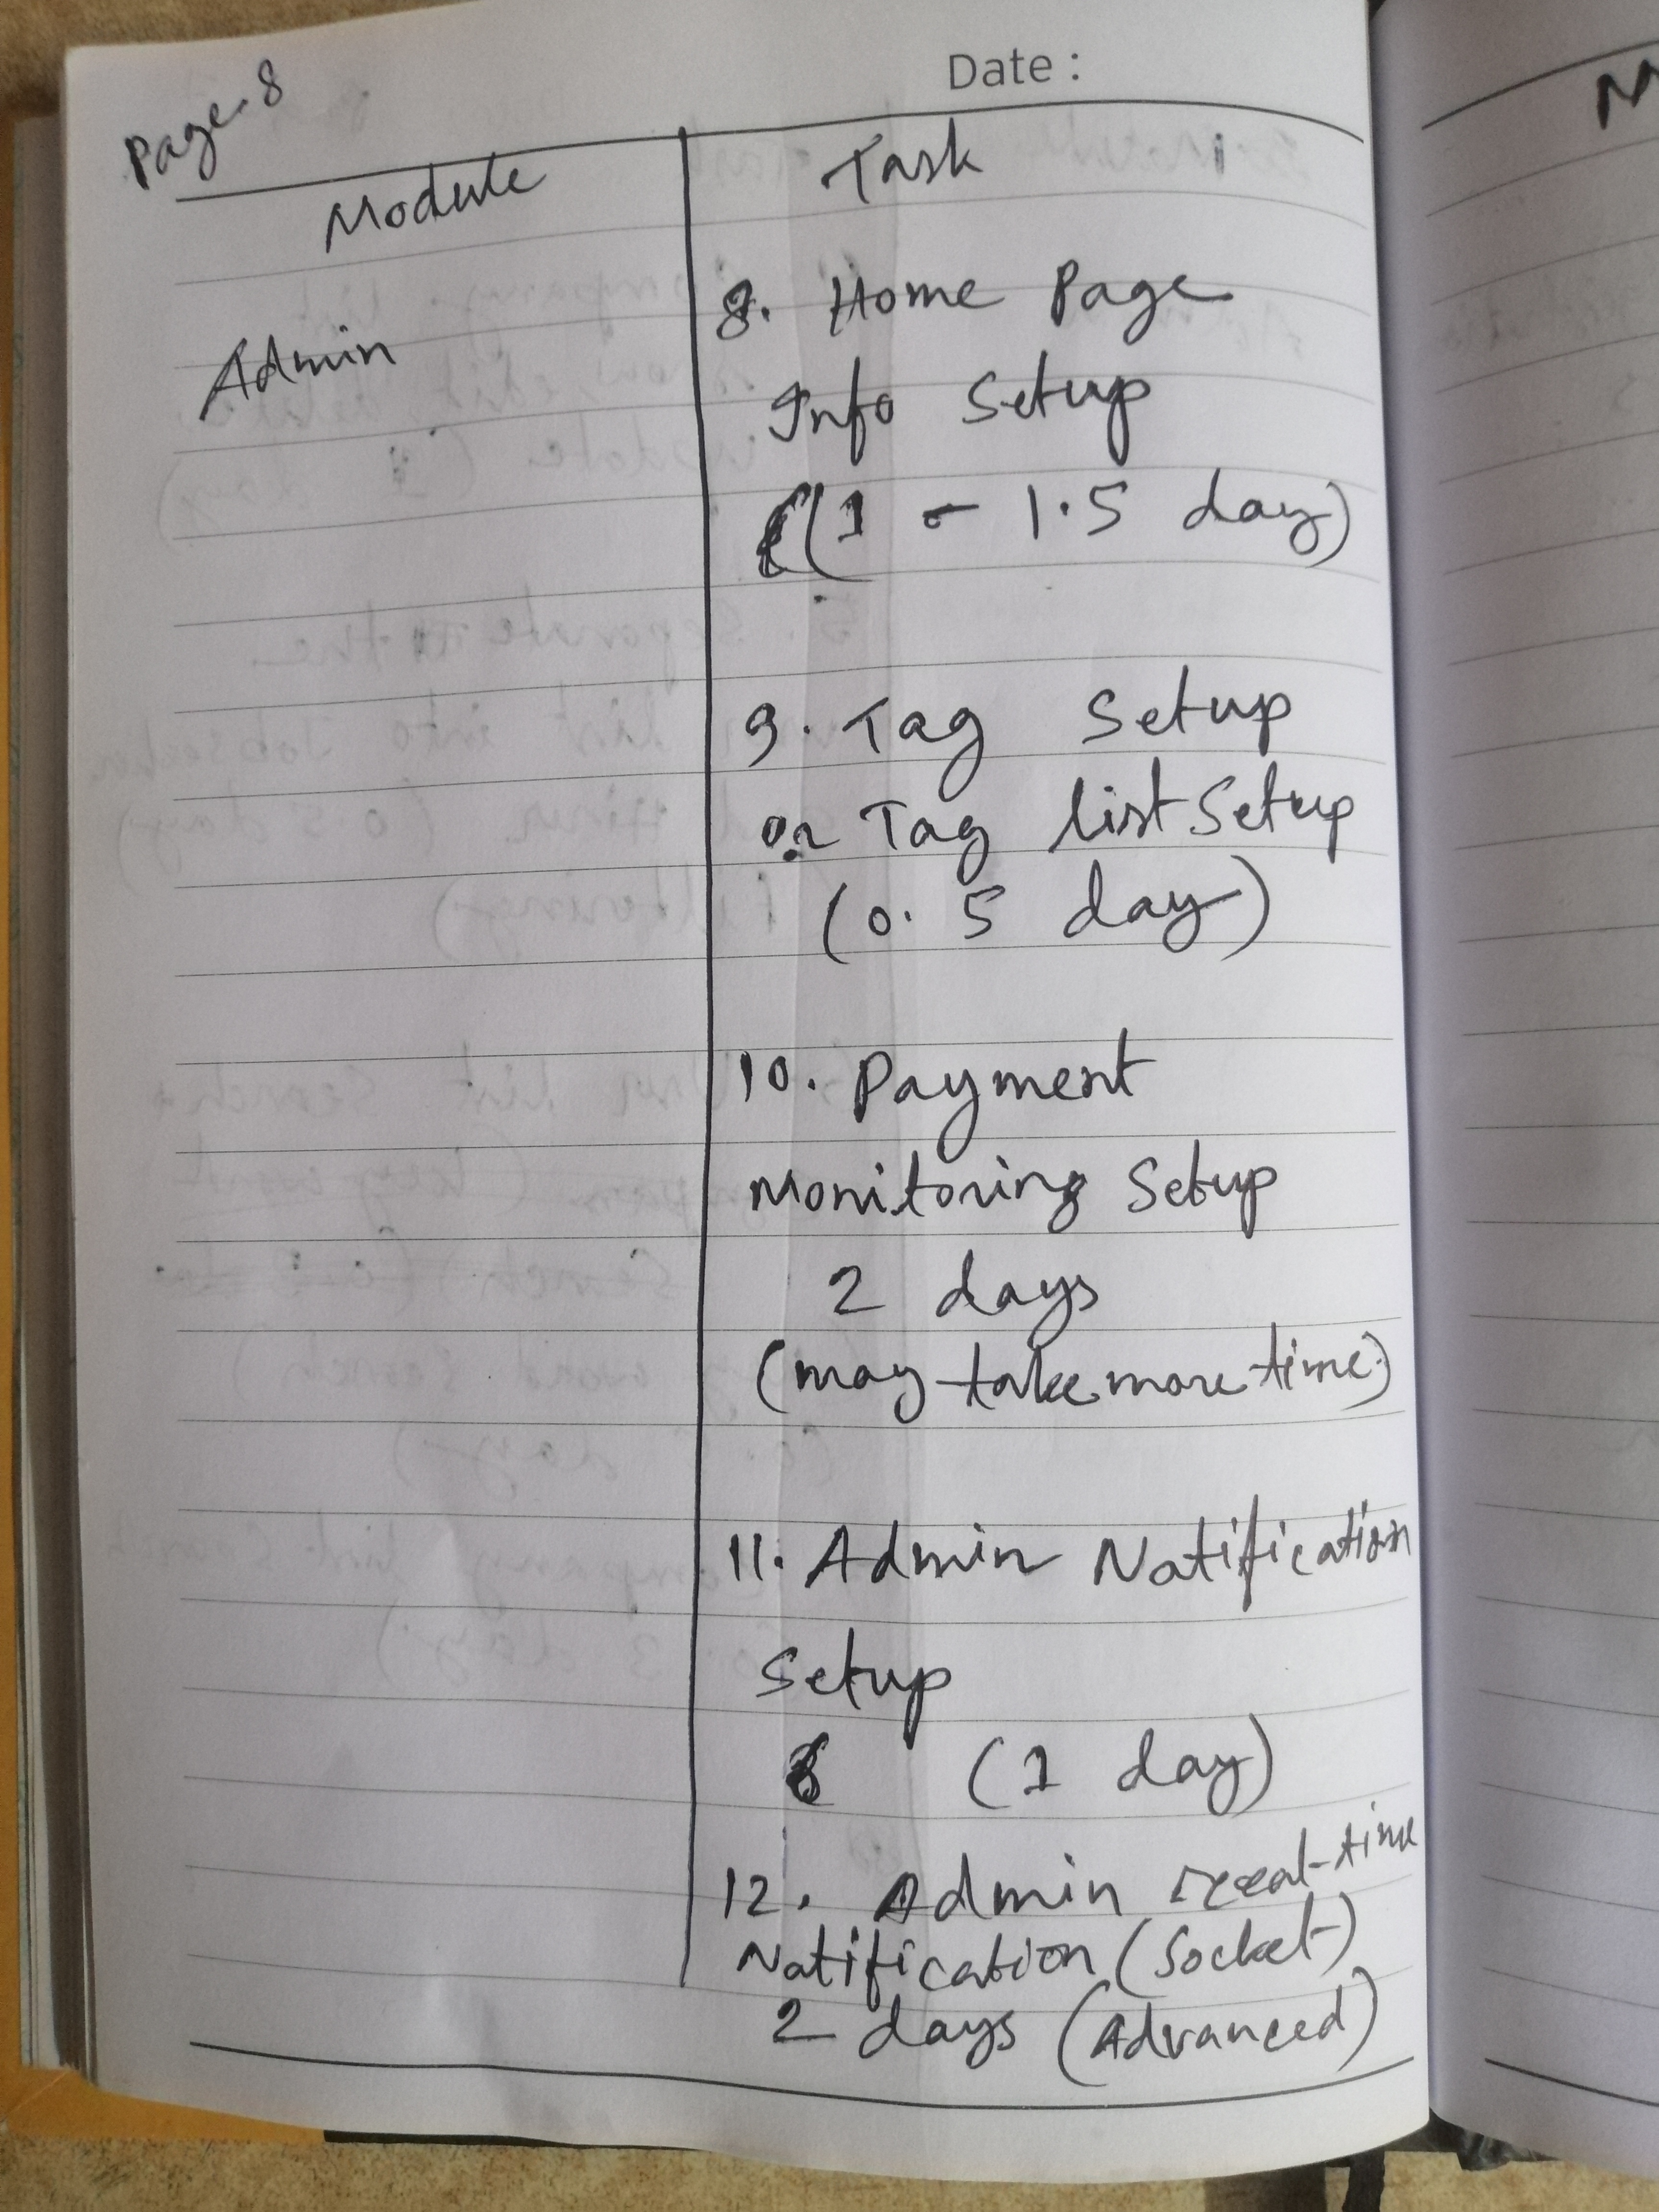 Page-8
Date :
Module
Task
Admin
8. Home Page
Info Setup
(1 - 1.5 day)
9. Tag Setup
or Tag list Setup
(0.5 day)
10. Payment
Monitoring Setup
2 days
(may take more time)
11. Admin Notification
Setup
(1 day)
12. Admin real-time
Notification (Socket)
2 days (Advanced)